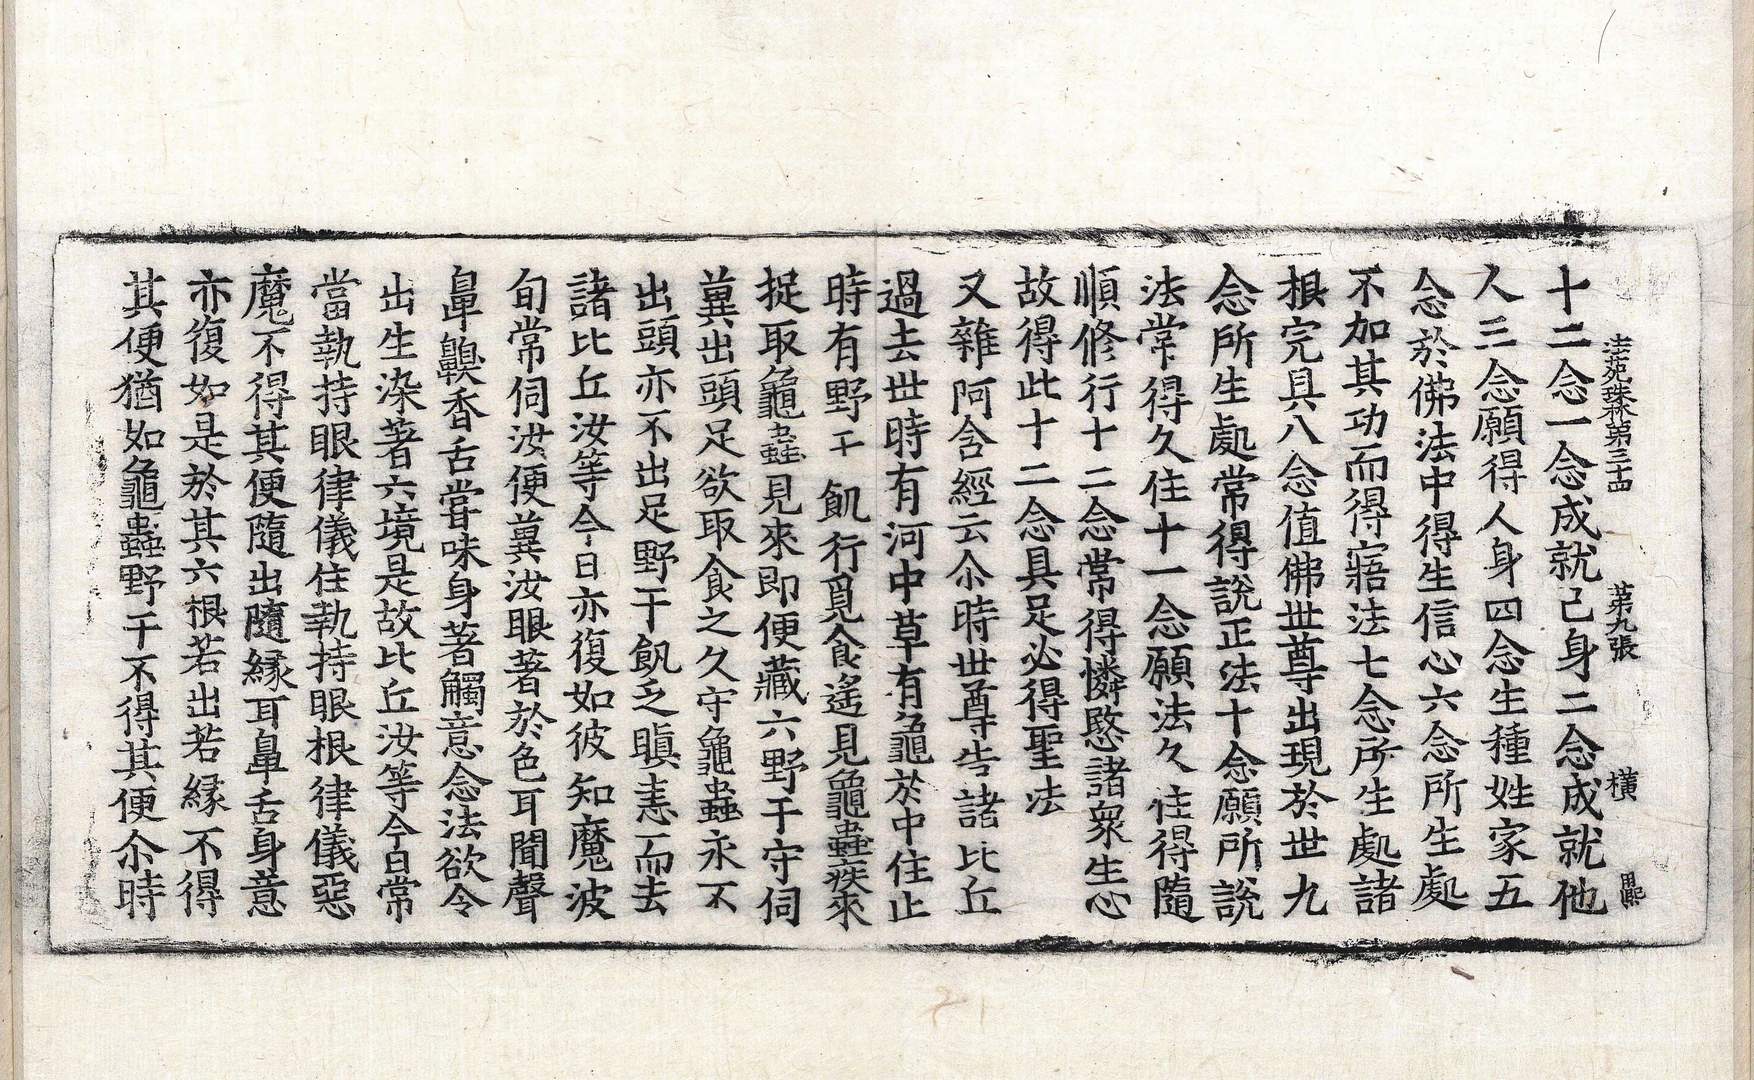 法苑珠林第三十四　第九張　橫
十二念一念成就己身二念成就他
人三念願得人身四念生種姓家五
念於佛法中得生信心六念所生處
不加其功而得寤法七念所生處諸
根完具八念值佛世尊出現於世九
念所生處常得說正法十念願所說
法常得久住十一念願法久住得隨
順修行十二念常得憐愍諸衆生心
故得此十二念具足必得聖法
又雜阿含經云尒時世尊告諸比丘
過去世時有河中草有龜於中住止
時有野干飢行覓食遙見龜蟲疾來
捉取龜蟲見來即便藏六野干守伺
兾出頭足欲取食之久守龜蟲永不
出頭亦不出足野干飢乏瞋恚而去
諸比丘汝等今日亦復如彼知魔波
旬常伺汝便兾汝眼著於色耳聞聲
鼻齅香舌甞味身著觸意念法欲令
出生染著六境是故比丘汝等今日常
當執持眼律儀住執持眼根律儀惡
魔不得其便隨出隨緣耳鼻舌身意
亦復如是於其六根若出若緣不得
其便猶如龜蟲野干不得其便尒時